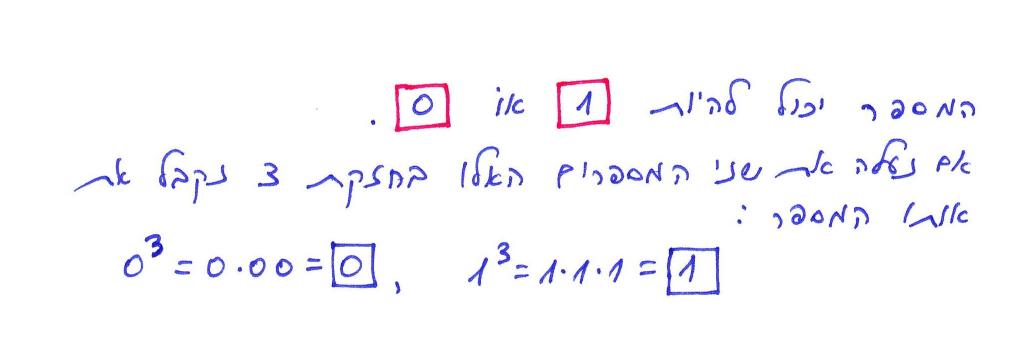 המספר יכול להיות 1 או 0 .
אם נעלה את שני המספרים האלו בחזקת 3 נקבל את
אותו המספר :
0³ = 0·00 = 0 , 1³ = 1·1·1 = 1